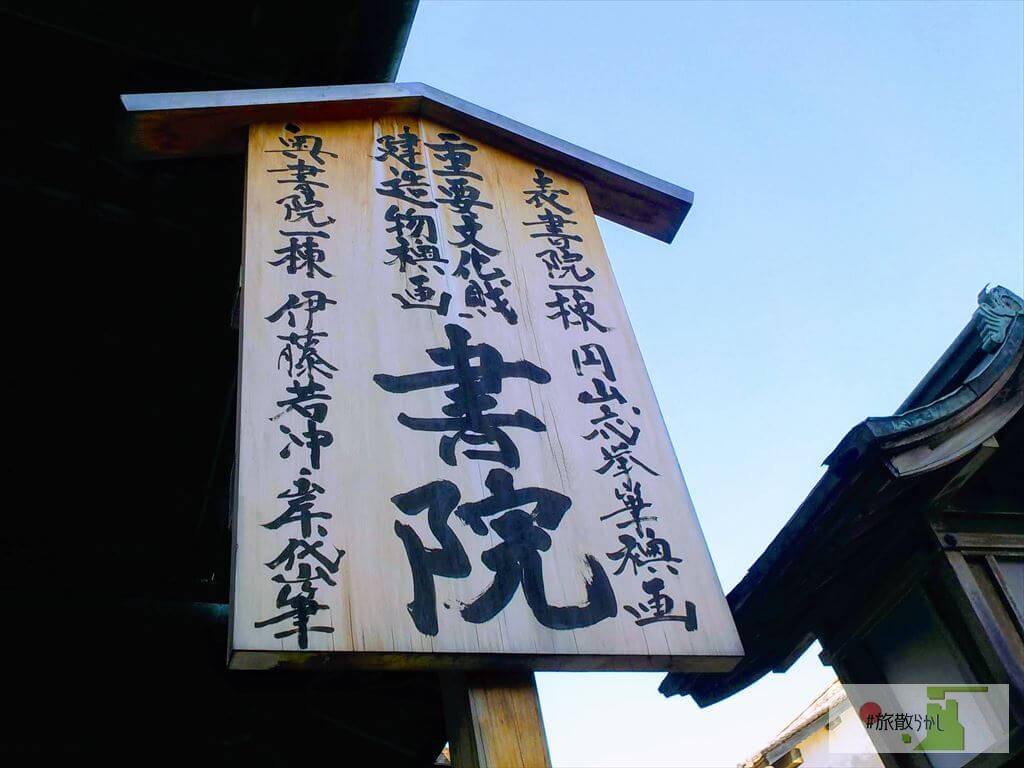 表書院一棟 円山応挙筆襖画
重要文化財
建造物襖画
書院
奥書院一棟 伊藤若冲、岸岱筆
#旅散らかし